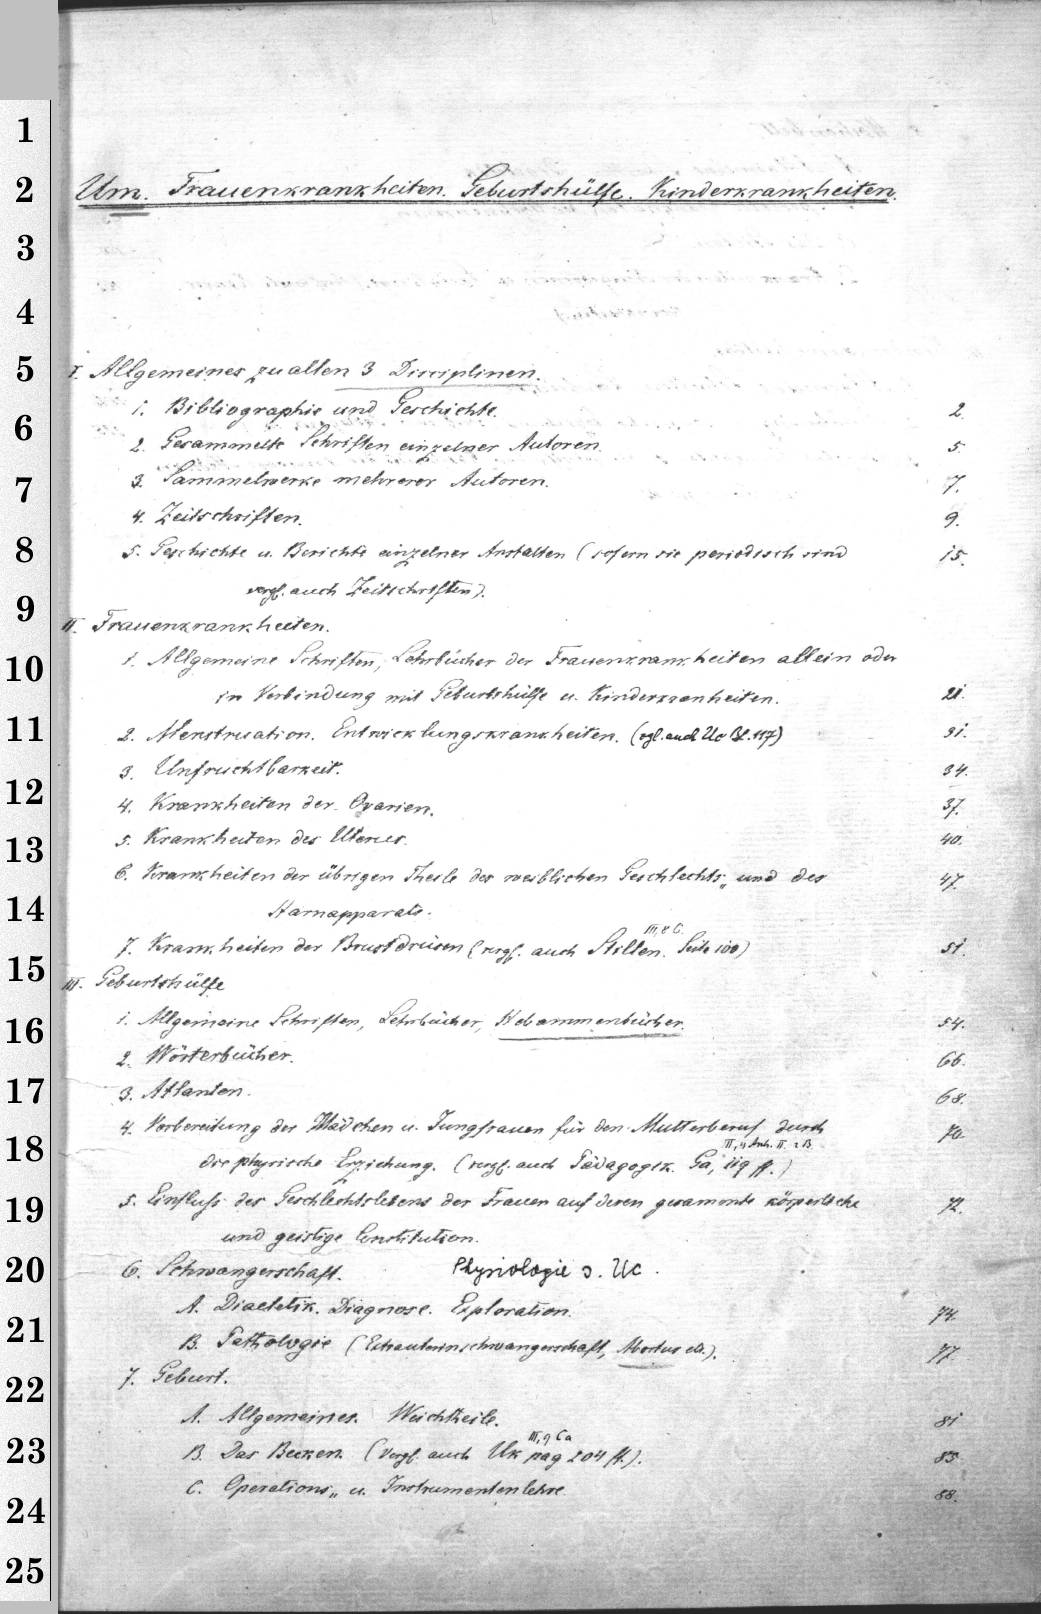 Um. Frauenkrankheiten. Geburtshülfe. Kinderkrankheiten.
I. Allgemeines zu allen 3 Disciplinen.
1. Bibliographie und Geschichte. 2.
2. Gesammelte Schriften einzelner Autoren. 5.
3. Sammelwerke mehrerer Autoren. 7.
4. Zeitschriften. 9.
5. Geschichte u. Berichte einzelner Anstalten (sofern sie periodisch sind 15.
vergl. auch Zeitschriften).
II. Frauenkrankheiten.
1. Allgemeine Schriften, Lehrbücher der Frauenkrankheiten allein oder
in Verbindung mit Geburtshülfe u. Kinderkrankheiten. 21.
2. Menstruation. Entwicklungskrankheiten. (vgl. auch Uc Bl. 117) 31.
3. Unfruchtbarkeit. 34.
4. Krankheiten der Ovarien. 37.
5. Krankheiten des Uterus. 40.
6. Krankheiten der übrigen Theile des weiblichen Geschlechts„ und des 47.
Harnapparats.
III, 8 C.
7. Krankheiten der Brustdrüsen (vergl. auch Stillen. Seite 100) 51.
III. Geburtshülfe
1. Allgemeine Schriften, Lehrbücher, Hebammenbücher. 54.
2. Wörterbücher. 66.
3. Atlanten. 68.
4. Vorbereitung der Mädchen u. Jungfrauen für den Mutterberuf durch 70.
die physische Erziehung. (vergl. auch Pädagogik. Ga, 119 ff.)
5. Einfluss des Geschlechtslebens der Frauen auf deren gesammte körperliche 72.
und geistige Constitution.
6. Schwangerschaft. Physiologie s. Uc.
A. Diaetetik. Diagnose. Exploration. 74.
B. Pathologie (Extrauterinschwangerschaft, Abortus etc.). 77.
7. Geburt.
A. Allgemeines. Weichtheile. 81
III, 9 Ca
B. Das Becken. (Vergl. auch Uk pag 204 ff.). 85.
C. Operations„ u. Instrumentenlehre 88.
1
2
3
4
5
6
7
8
9
10
11
12
13
14
15
16
17
18
19
20
21
22
23
24
25